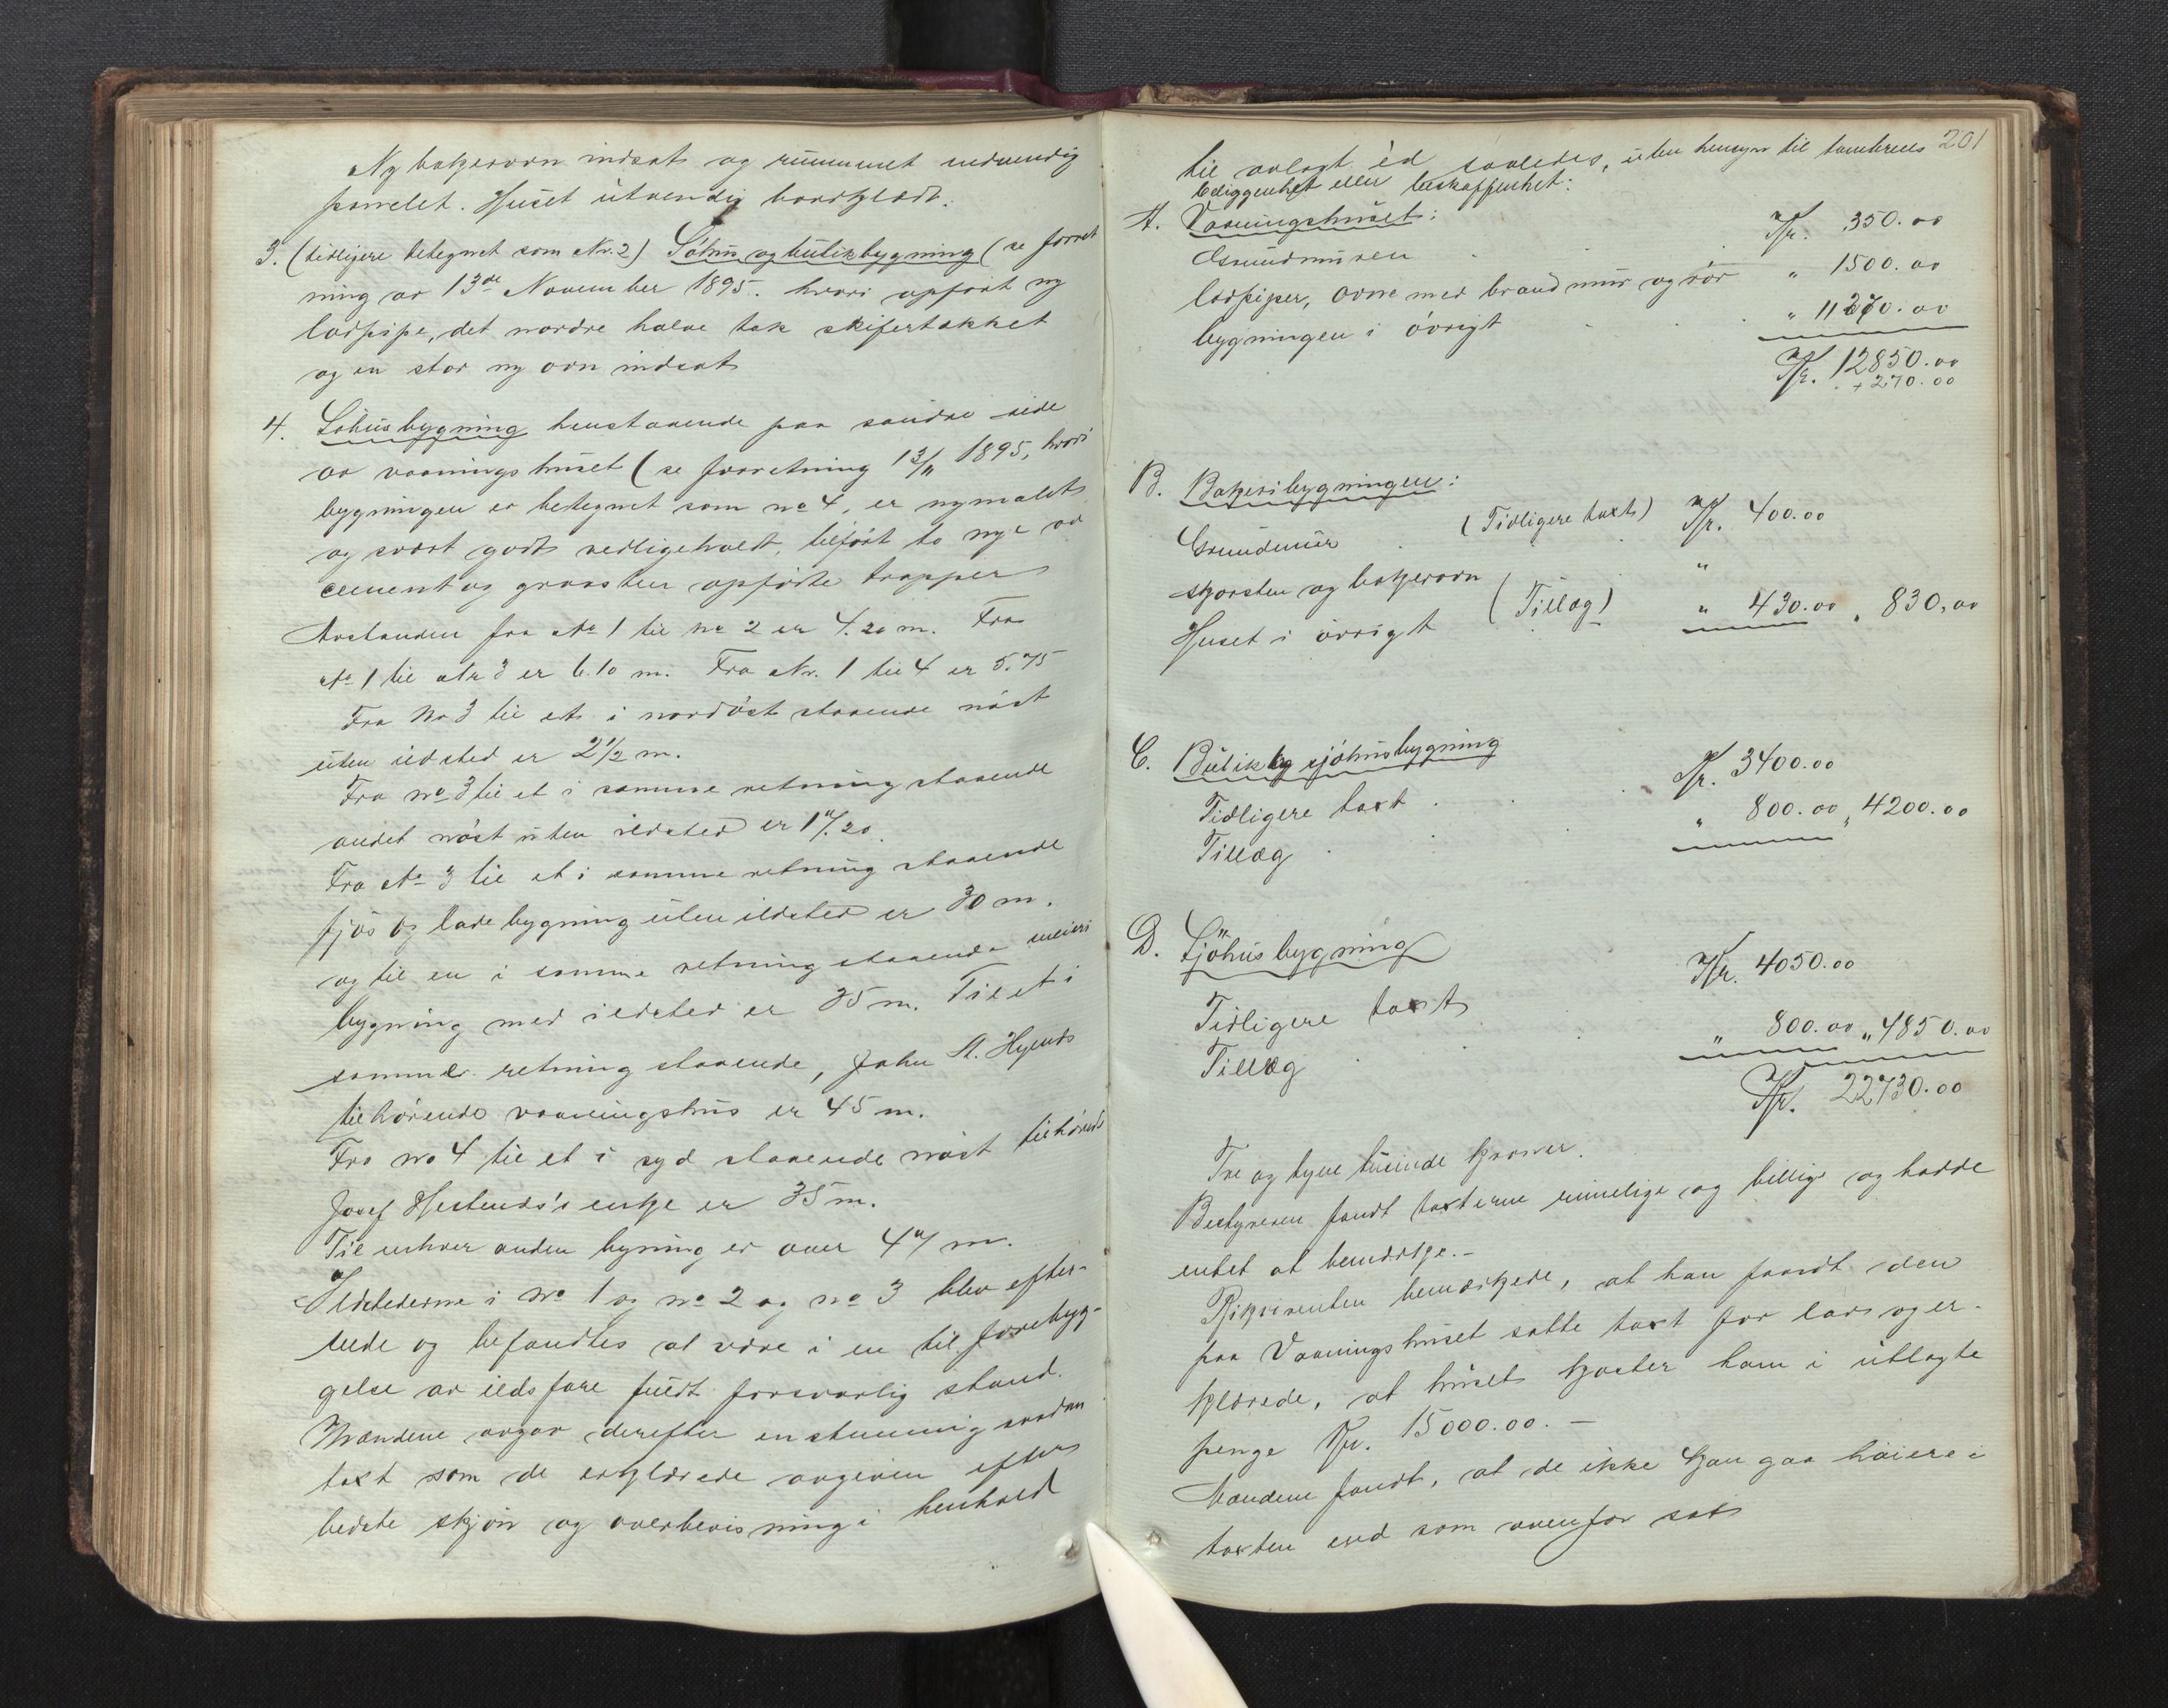 Ny bakerovn indsat og rummet indvendig
panelet. Huset utvendig bordklædt.
3. (tidligere betegnet som Nr. 2) Söhus og butikbygning (se forret
ning av 13de November 1895. hvori opført ny
lodpipe, det nordre halve tak skifertækket
og en stor ny ovn indsat
4. Söhusbygning henstaaende paa søndre side
av vaaningshuset (se forretning 13/11 1895, hvori
bygningen er betegnet som no 4, er nymalet
og svært godt vedligeholdt, tilført to nye av
cement og graasten opførte trapper
Avstanden fra No 1 til no 2 er 4.20 m. Fra
No 1 til No 3 er 6.10 m. Fra Nr. 1 til 4 er 5.75
Fra No 3 til et i nordöst staaende nöst
uten ildsted er 2 1/2 m.
Fra no 3 til et i samme retning staaende
andet nöst uten ildsted er 17.20
Fra No 3 til et i samme retning staaende
fjös og ladebygning uten ildsted er 30 m.
og til en i samme retning staaende meieri
bygning med ildsted er 35 m. Til et i
samme retning staaende, John A. Hgends
tilhørende vaaningshus er 45 m.
Fra no 4 til et i syd staaende nöst tilhørende
Josef Hestends's enke er 35 m.
Til enhver anden bygning er over 47 m.
Ildstederne i no 1 og no 2 og no 3 blev efter-
seede og befandtes at være i en til forebyg-
gelse av ildsfare fuldt forsvarlig stand.
Mændene avgav derefter enstemmig saadan
taxt som de erklærede avgiven efter
bedste skjøn og overbevisning i henhold
201
til avlagt ed saaledes, uten hensyn til tomternes
beliggenhet eller beskaffenhet:
A. Vaaningshuset:
Grundmuren Kr. 350.00
Lodpiper, ovne med brandmur og rör " 1500.00
bygningen i övrigt " 11270.00
Kr. 12850.00
+ 270.00
B. Bakeribygningen:
Grundmur (Tidligere taxt) Kr. 400.00
skorsten og bakerovn "
Huset i övrigt (Tillæg) " 430.00 " 830,00
C. Butik og sjöhusbygning
Tidligere taxt Kr. 3400.00
Tillæg " 800.00 " 4200.00
D. Sjöhusbygning
Tidligere taxt Kr. 4050.00
Tillæg " 800.00 " 4850.00
Kr. 22730.00
Tre og tyve tusinde kroner.
Bestyreren fandt taxterne rimelige og billige og hadde
intet at bemærke.-
Rekvirenten bemærkede, at han fandt den
paa Vaaningshuset satte taxt for lav og er-
klærede, at huset koster ham i utlagte
penge Kr. 15000.00.-
Mændene fandt, at de ikke kan gaa höiere i
taxten end som ovenfor sat